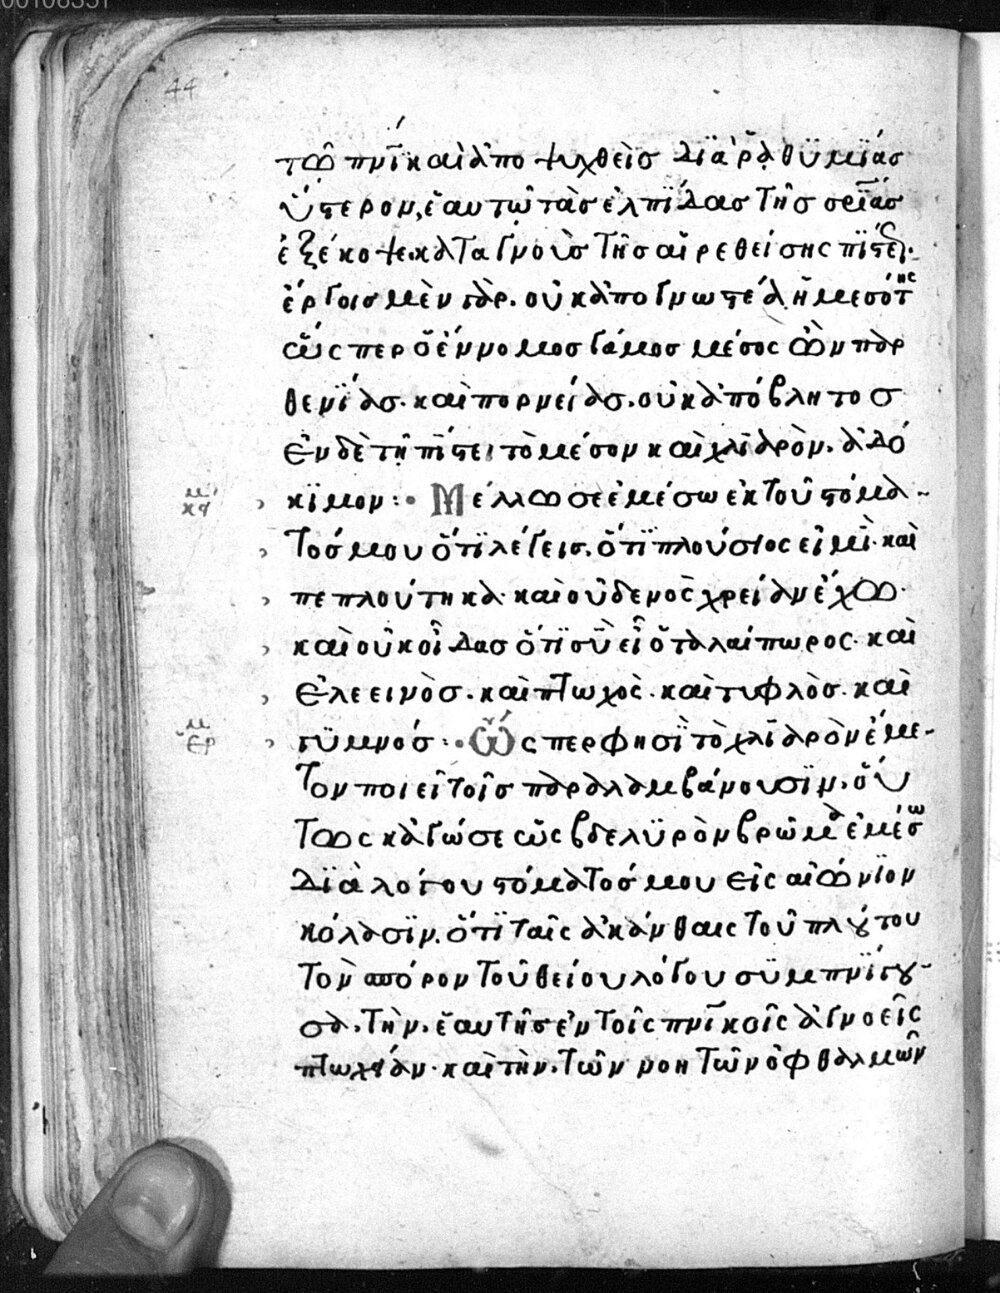 44
τῶ πνϊ καὶ ἀποψυχθεὶσ διὰ ῥαθϋμϊάσ
ὕστερον, ἑαυτῶ τὰσ ἐλπϊδασ τῆσ σρϊασ
ἐξέκοψε. καταγνοὺσ τῆσ αἱρεθείσης πϊστε
ἔργοισ μὲν γὰρ. οὐκ ἀπογνωστέα ἡ μεσότης
ὥς περ ὁ ἔννομοσ γάμοσ μέσος ὢν παρ
θενϊασ. καὶ πορνείασ. οὐκ ἀπόβλητοσ
ἐν δὲ τῆ πϊστει τὸ μέσον καὶ χλϊαρὸν. ἀδό
κϊμον :
κδ
Μέλλω σε ἐμέσω ἐκ τοῦ στόμα
τόσ μου ὅτϊ λέγεισ. ὅτϊ πλούσϊος εἰμὶ. καὶ
πεπλούτηκα. καὶ οὐδενὸς χρείαν ἔχω.
καὶ οὐκ οἶδασ ὅτϊ σὺ εἶ ὁ ταλαίπωρος. καὶ
ἐλεεινὸσ. καὶ πτωχὸς. καὶ τυφλὸσ. καὶ
γϋμνόσ :
ἑρ
Ὥς περ φησϊ τὸ χλϊαρὸν ἔμε
τον ποιεῖ τοῖσ παραλαμβάνουσϊν. οὕ
τως κἀγώ σε ὡς βδελϋρὸν βρῶμα ἐμέσω
διὰ λόγου στόματόσ μου εἰς αἰώνϊον
κόλασϊν. ὅτϊ ταῖς ἀκάνθαις τοῦ πλούτου
τὸν σπόρον τοῦ θείου λόγου συμπνϊγου
σα. τὴν. ἑαυτῆσ ἐν τοῖς πνϊκοῖς ἀγνοεῖς
πτωχείαν. καὶ τὴν. τῶν νοητῶν ὀφθαλμῶν